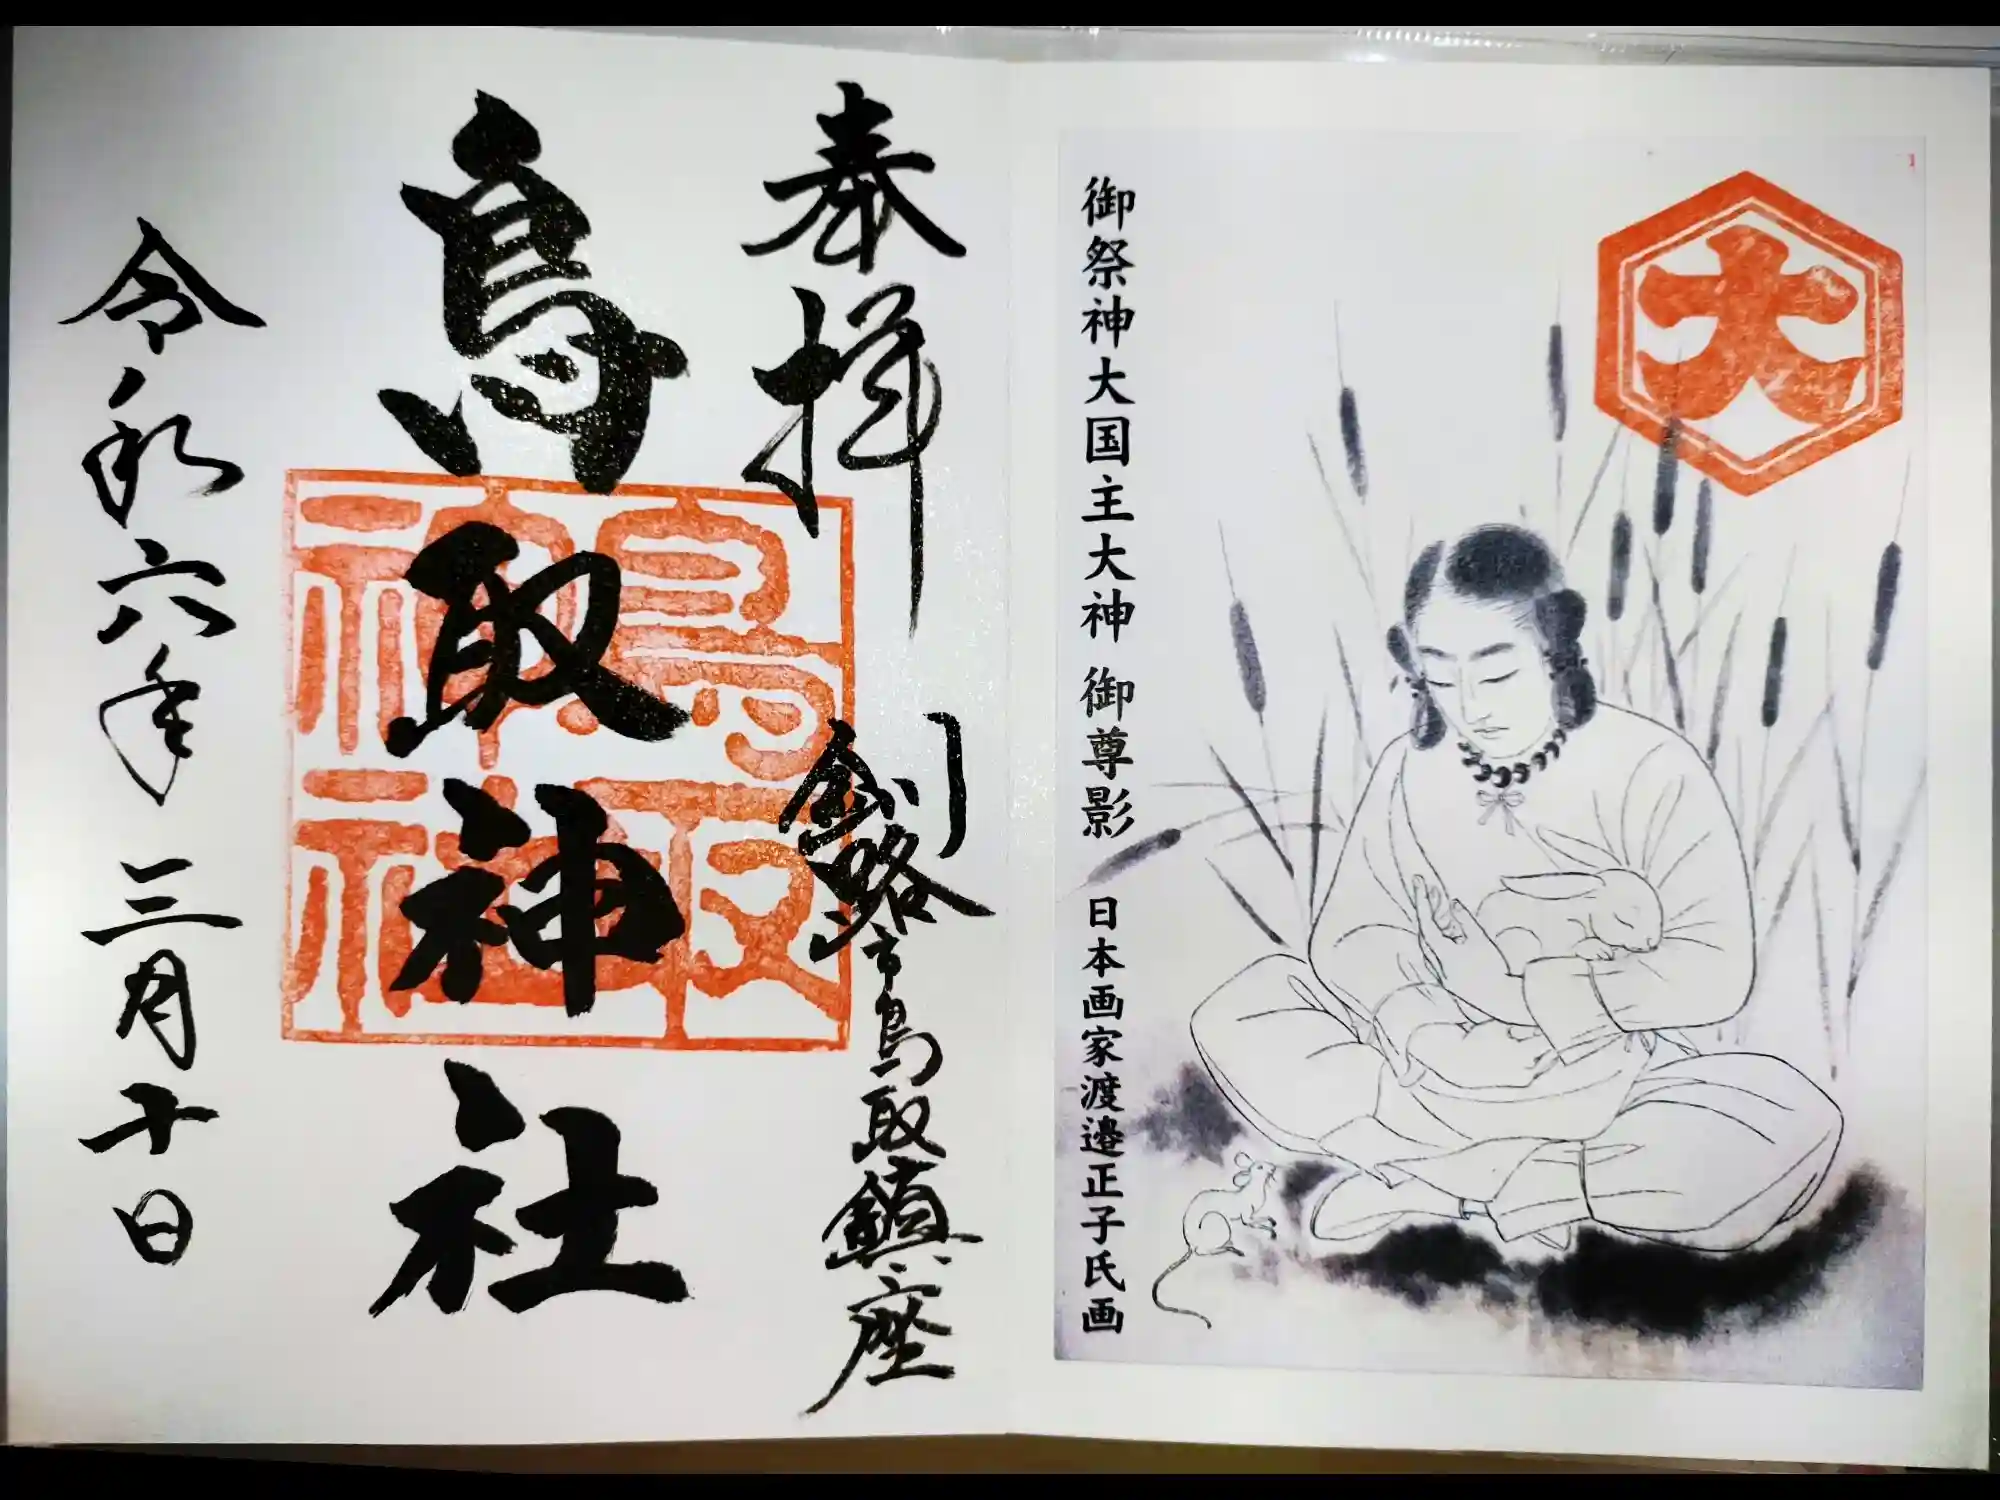 大
御祭神大国主大神 御尊影 日本画家渡邉正子氏画
奉拝
釧路市鳥取鎮座
鳥取神社
鳥取神社
令和六年三月十日